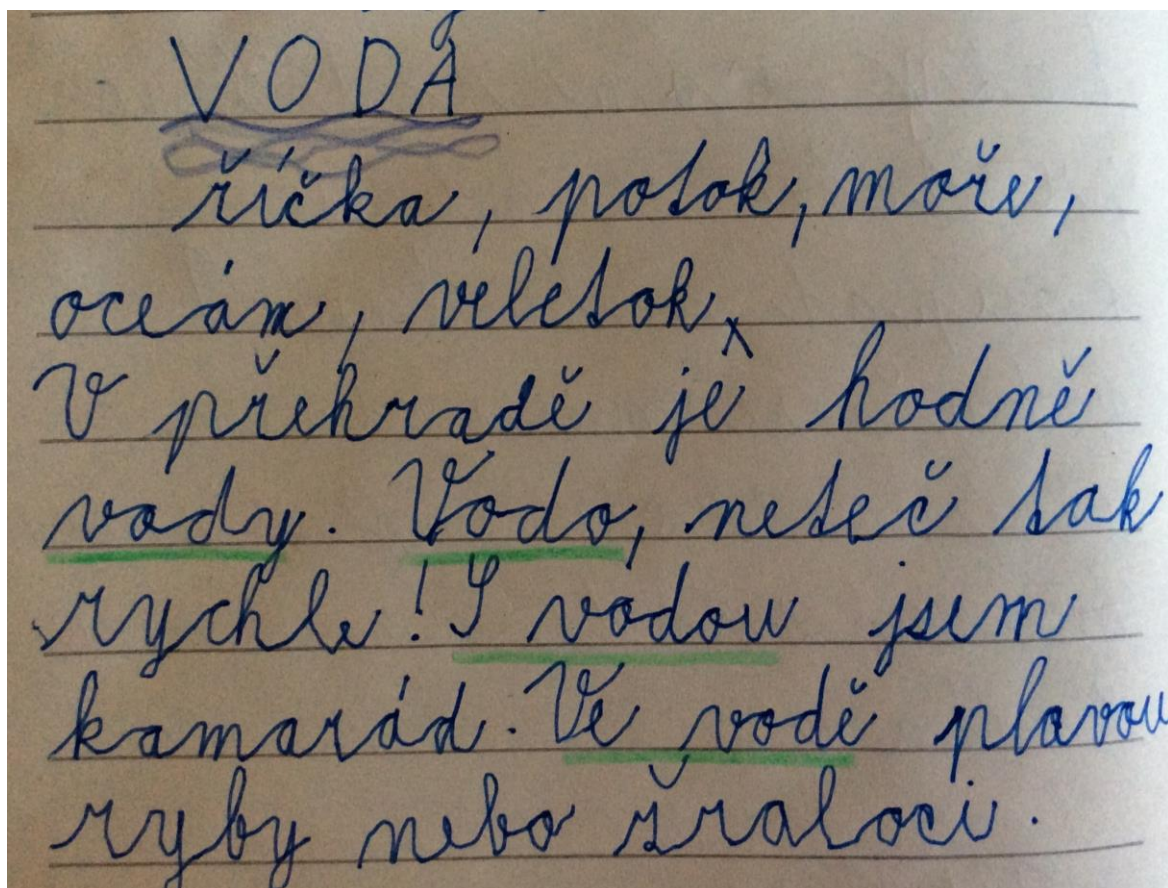 VODA
říčka, potok, moře,
oceán, veletok
V přehradě je hodně
vody. Vodo, neteč tak
rychle! S vodou jsem
kamarád. Ve vodě plavou
ryby nebo žraloci.